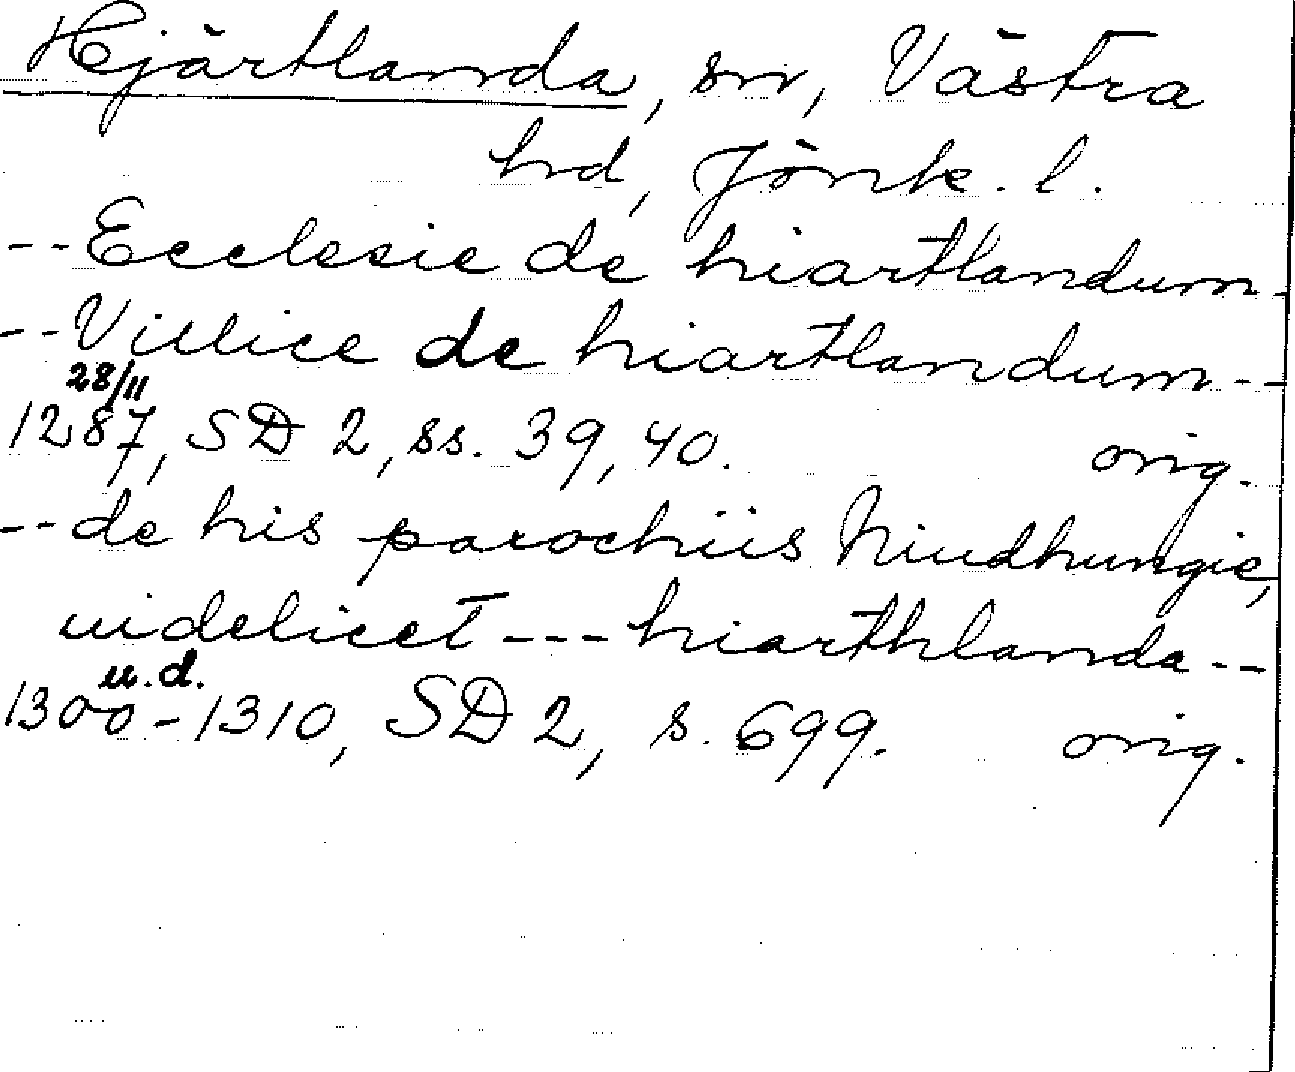 Hjärtlanda, sn, Västra
hd, Jönk. l.
--Ecclesie de hiartlandum-
--Villice de hiartlandum--
28/11
1287, SD 2, ss. 39, 40. orig.
--de his parochiis Niudhungie,
uidelicet --- hiarthlanda--
u.d.
1300-1310, SD 2, s. 699. orig.